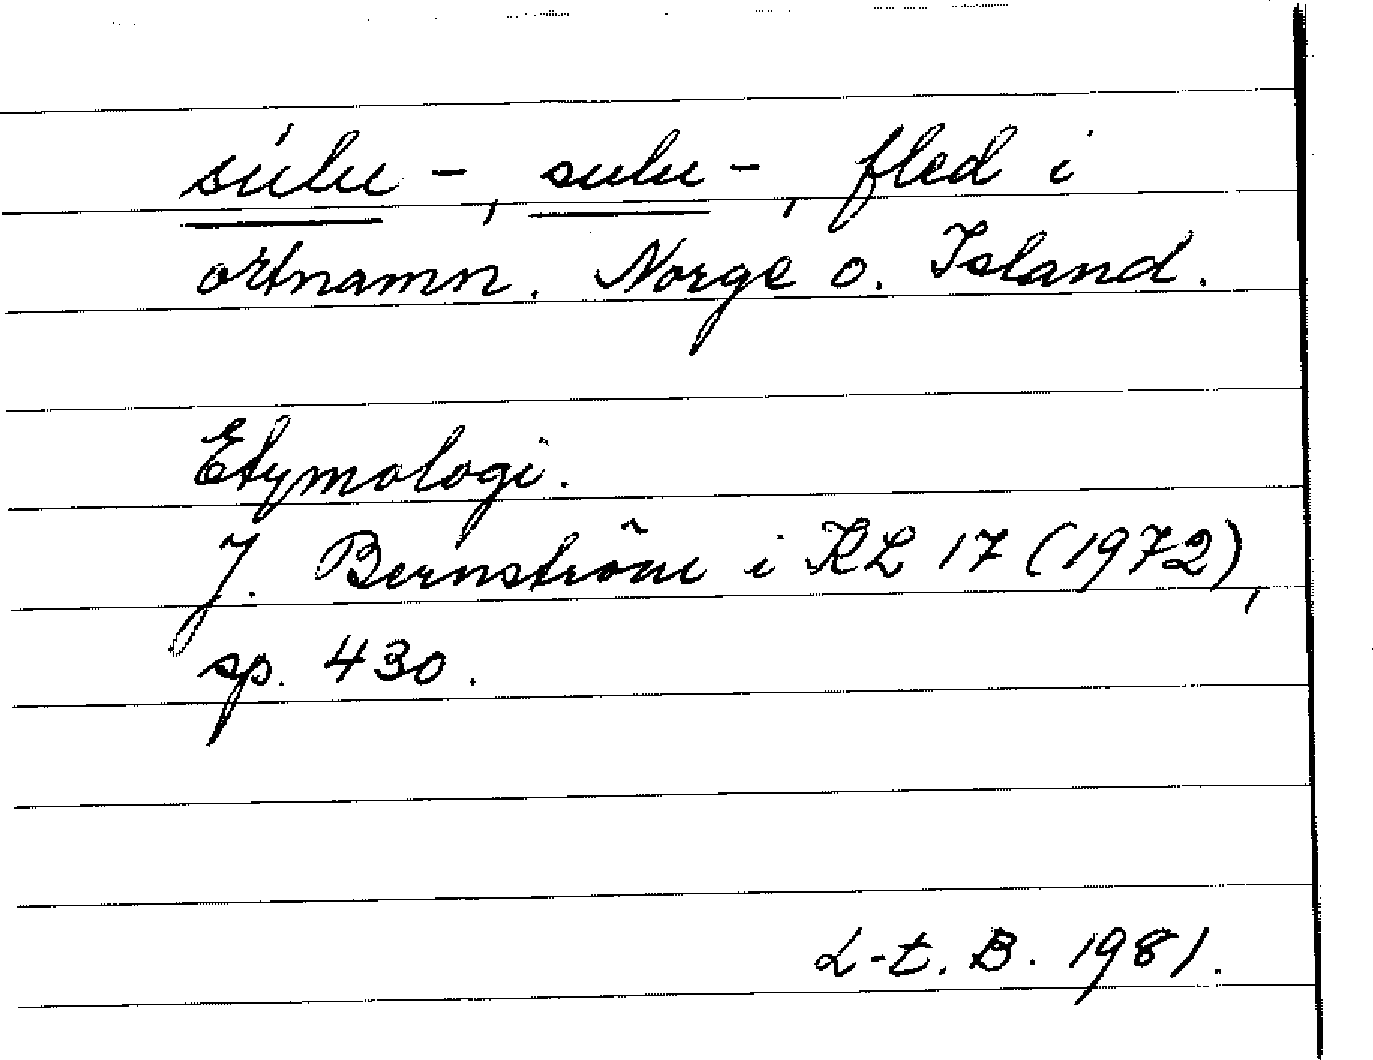 súlu-, sulu-, fled i
ortnamn. Norge o. Island.
Etymologi.
J. Bernström i KL 17 (1972),
sp. 430.
L-t. B. 1981.